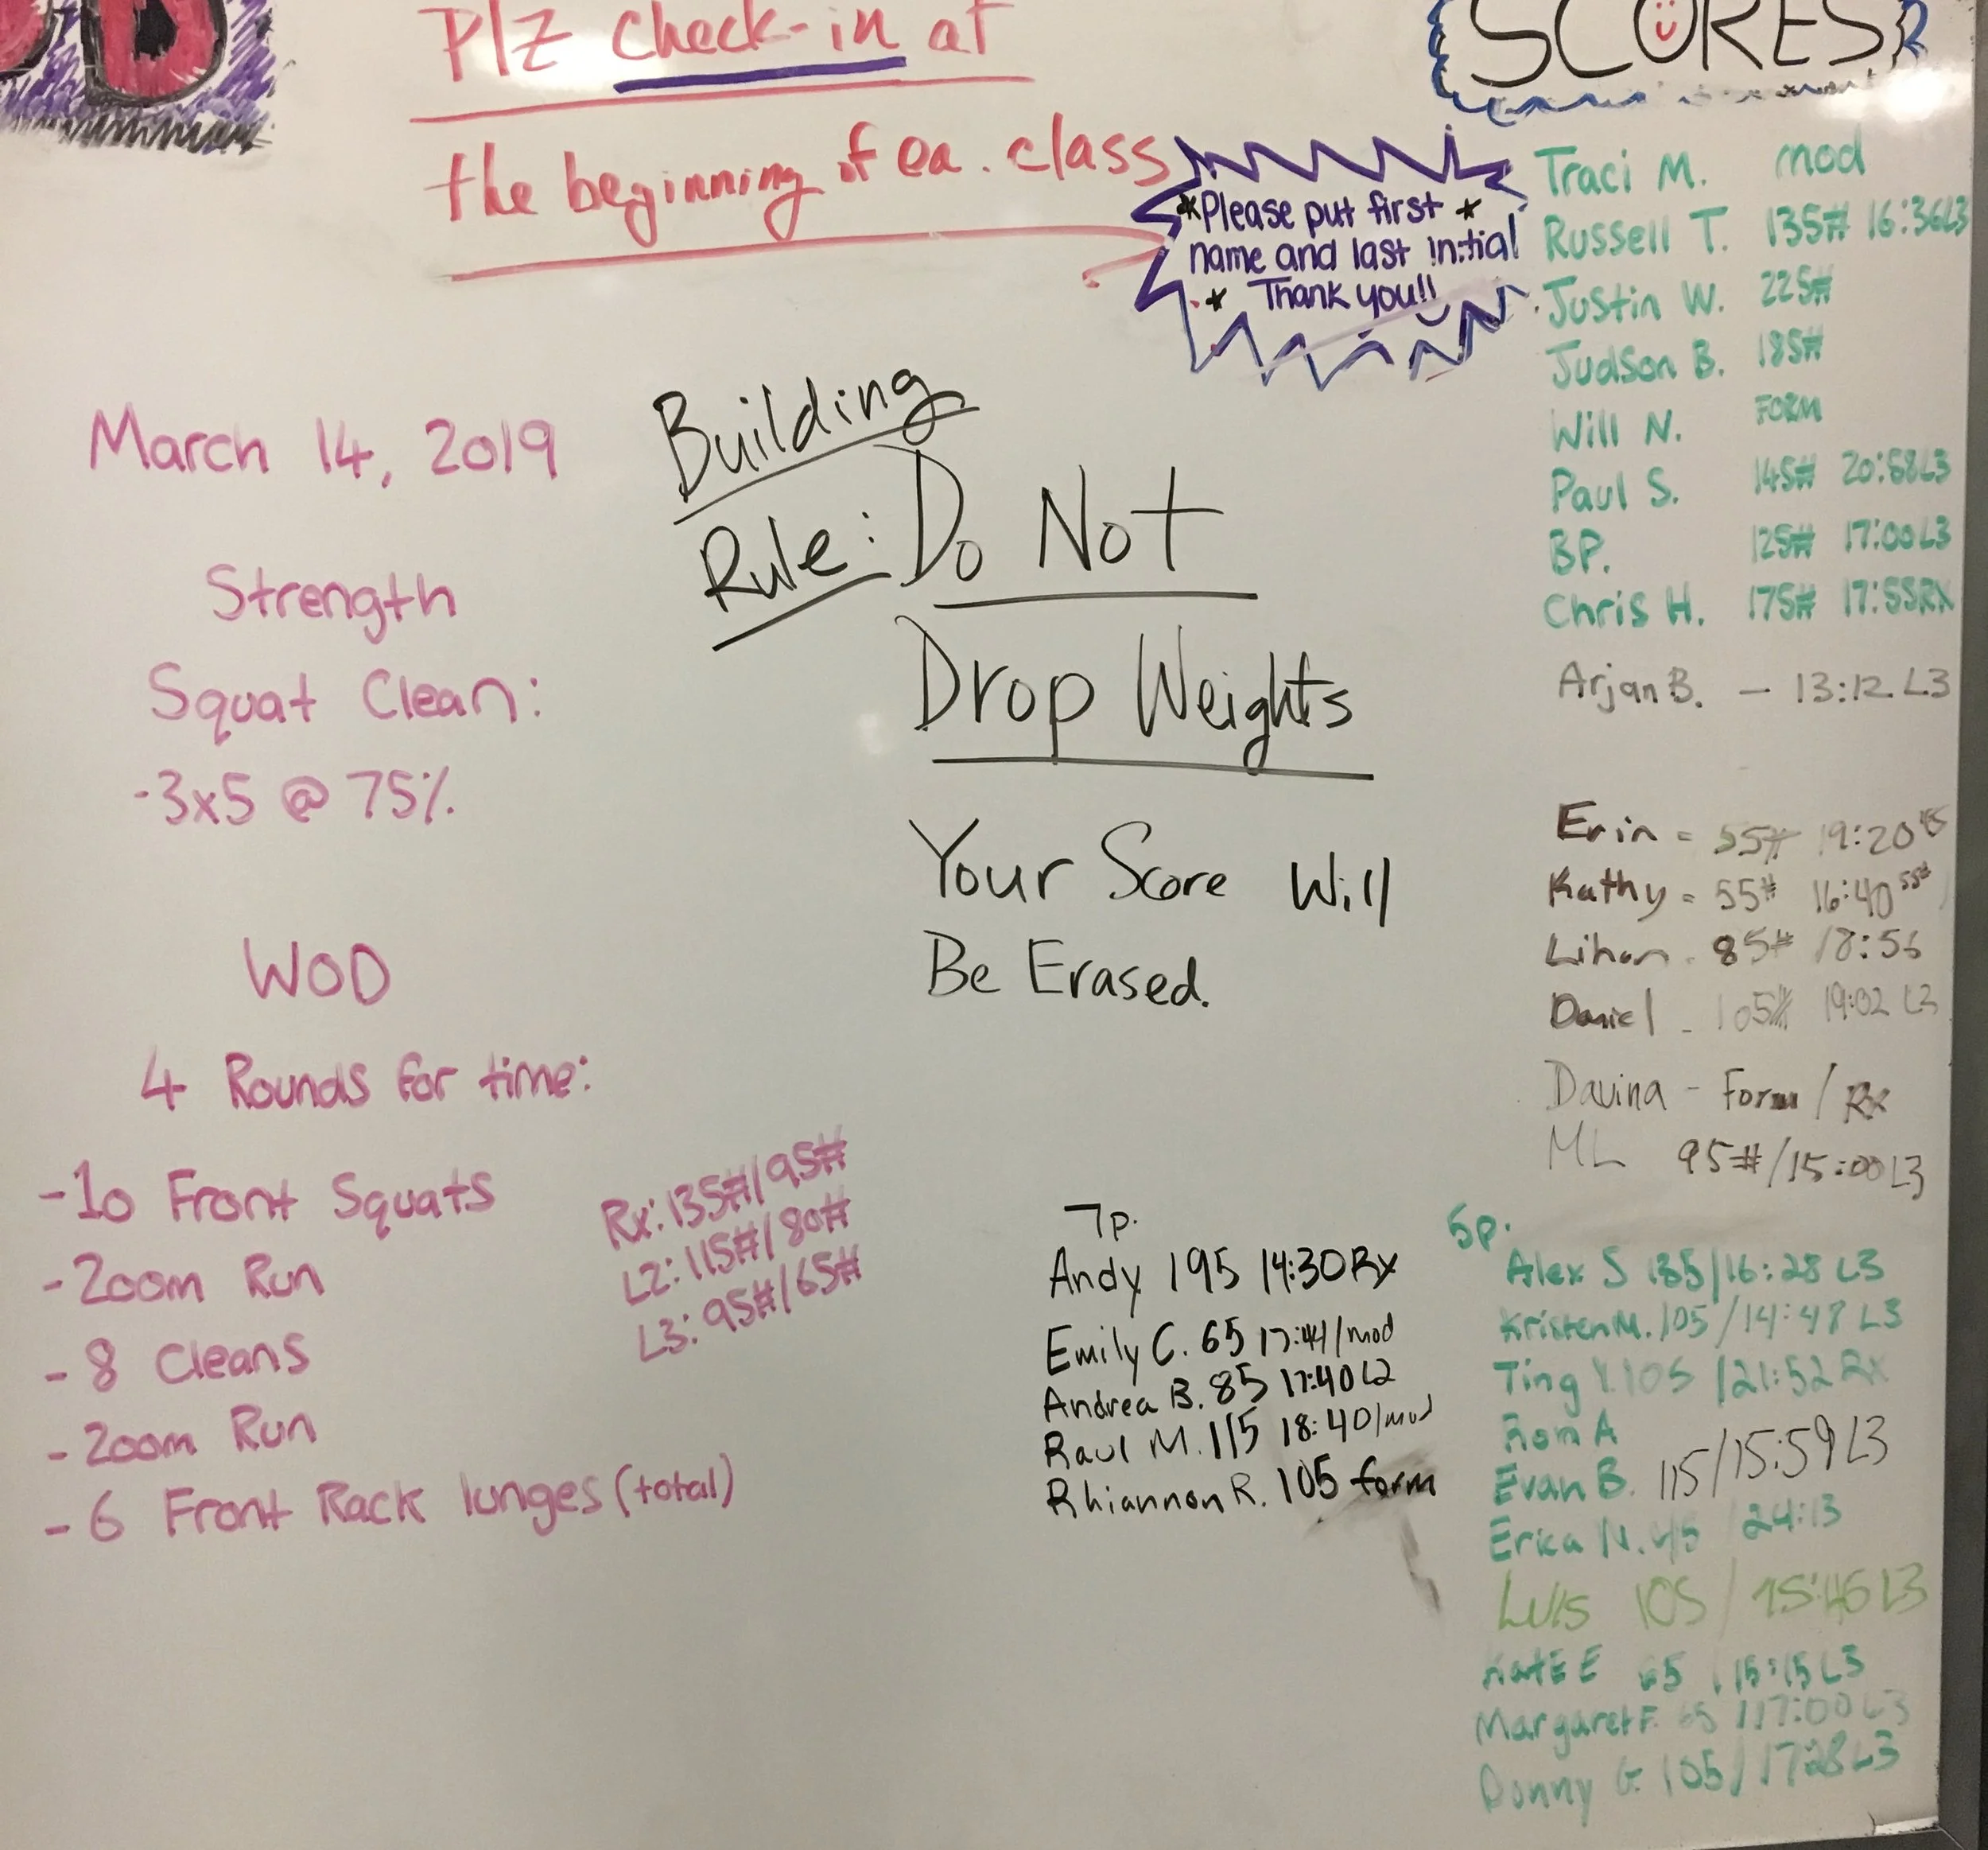 Plz check-in at
the beginning of ea. class
*Please put first *
name and last initial
* Thank you!!
March 14, 2019
Strength
Squat Clean:
-3x5 @ 75%
WOD
4 Rounds for time:
-10 Front Squats
-200m Run
-8 Cleans
-200m Run
-6 Front Rack lunges (total)
Rx: 135#/95#
L2: 115#/80#
L3: 95#/65#
Building
Rule: Do Not
Drop Weights
Your Score Will
Be Erased.
7p.
Andy 195 14:30 Rx
Emily C. 65 17:41/mod
Andrea B. 85 17:40 L2
Raul M. 115 18:40/mod
Rhiannon R. 105 form
SCORES
Traci M. mod
Russell T. 135# 16:36L3
Justin W. 225#
Judson B. 185#
Will N. FORM
Paul S. 145# 20:58L3
BP. 125# 17:00L3
Chris H. 175# 17:55RX
Arjan B. - 13:12 L3
Erin = 55# 19:20
Kathy = 55# 16:40 55#
Lihon - 85# 18:56
Daniel - 105# 19:02 L3
Davina - Form / Rx
ML 95#/15:00 L3
5p.
Alex S 185/16:28 L3
Kristen M. 105/14:48 L3
Ting Y. 105 /21:52 Rx
Ron A
Evan B. 115/15:59 L3
Erica N. /24:13
Luis 105 / 15:46 L3
KatE E 65 /15:15 L3
Margaret F. 65 /17:00 L3
Donny G. 105/17:28 L3